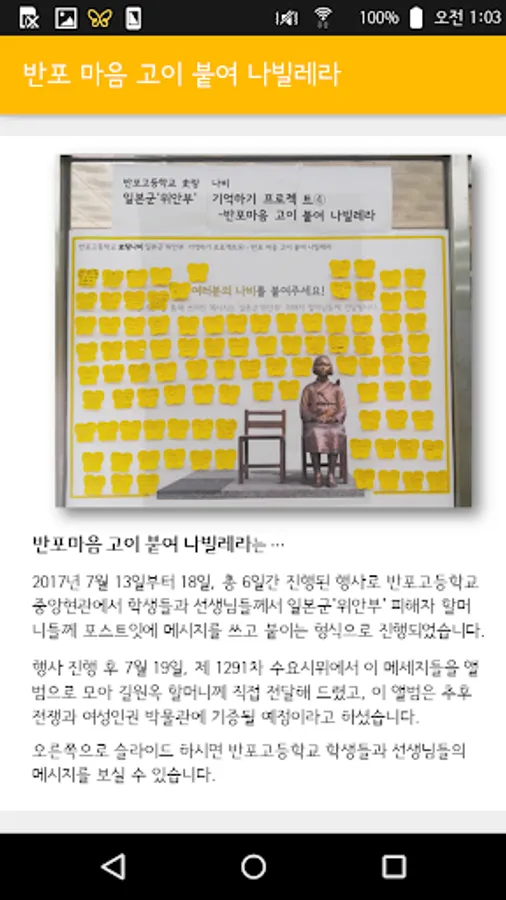 100% 오전 1:03
반포 마음 고이 붙여 나빌레라
반포고등학교 史랑 나비
일본군'위안부' 기억하기 프로젝트④
-반포마음 고이 붙여 나빌레라
여러분의 나비를 붙여주세요!
반포마음 고이 붙여 나빌레라는 …
2017년 7월 13일부터 18일, 총 6일간 진행된 행사로 반포고등학교
중앙현관에서 학생들과 선생님들께서 일본군'위안부' 피해자 할머
니들께 포스트잇에 메시지를 쓰고 붙이는 형식으로 진행되었습니다.
행사 진행 후 7월 19일, 제 1291차 수요시위에서 이 메세지들을 앨
범으로 모아 길원옥 할머니께 직접 전달해 드렸고, 이 앨범은 추후
전쟁과 여성인권 박물관에 기증될 예정이라고 하셨습니다.
오른쪽으로 슬라이드 하시면 반포고등학교 학생들과 선생님들의
메시지를 보실 수 있습니다.